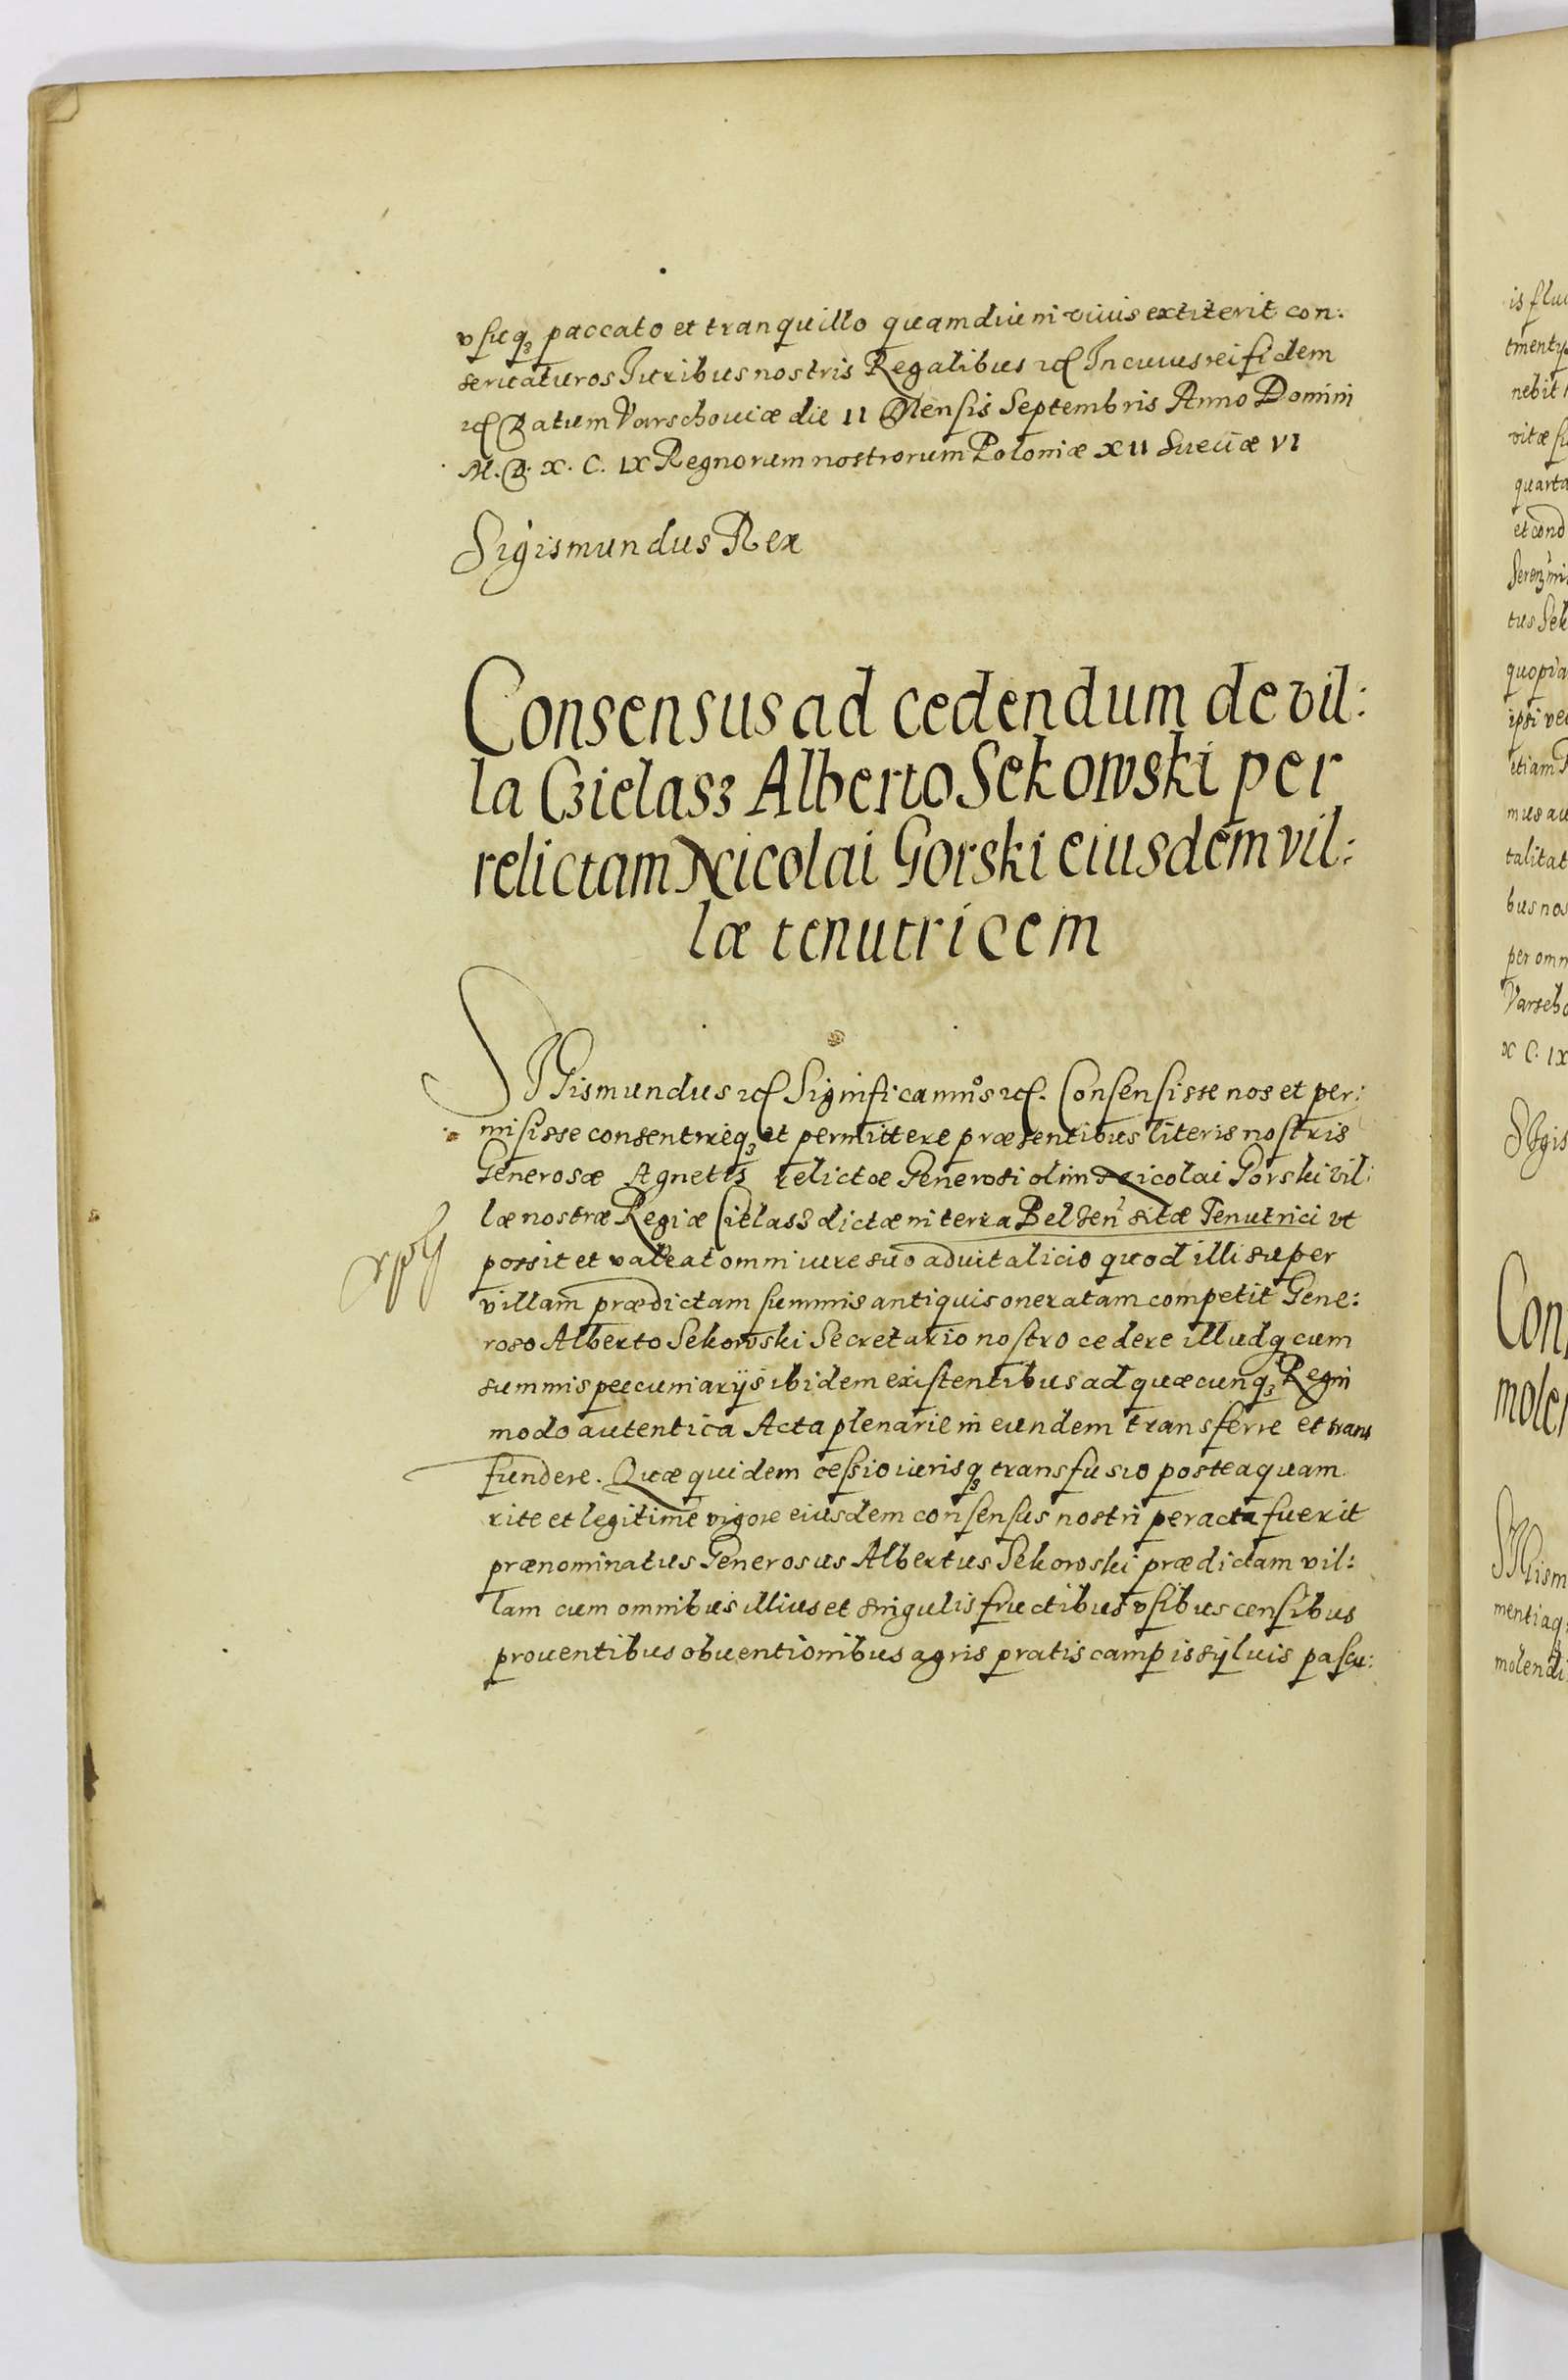 vsuq₃ paccato et tranquillo quamdiu in viuis extiterit con:
seruaturos Juribus nostris Regalibus etc In cuius rei fidem
etc Datum Varschouiæ die 11 Mensis Septembris Anno Domini
M. D. X. C. IX Regnorum nostrorum Poloniæ XII Sueciæ VI
Sigismundus Rex
Consensus ad cedendum de vil:
la Czielasz Alberto Sekowski per
relictam Nicolai Gorski eiusdem vil:
læ tenutricem
SIGismundus etc Significamus etc. Consensisse nos et per:
misisse consentireq₃ et permittere præsentibus literis nostris
Generosæ Agnetis relictæ Generosi olim Nicolai Gorski vil:
læ nostræ Regiæ Cielasz dictæ in terra Belzen sitæ Tenutrici vt
possit et valeat omni iure suo aduitalicio quod illi super
villam prædictam summis antiquis oneratam competit Gene:
roso Alberto Sekowski Secretario nostro cedere illudq cum
summis peccuniarijs ibidem existentibus ad quæcunq₃ Regni
modo autentica Acta plenarie in eundem transferre et trans
fundere. Quæ quidem cessio iurisq₃ transfusio posteaquam
rite et legitime vigore eiusdem consensus nostri peracta fuerit
prænominatus Generosus Albertus Sekowski prædictam vil:
lam cum omnibus illius et singulis fructibus vsibus censibus
prouentibus obuentionibus agris pratis campis syluis pascu:
is flu
tmenty
nebit
vitæ su
quarta
et cond
tus Sek
ipsi ve
etiam
mus au
talitat
bus nos
per omn
Varscho
X C. IX
Sigis
Con
molen
SIGism
mentiaq
molendi